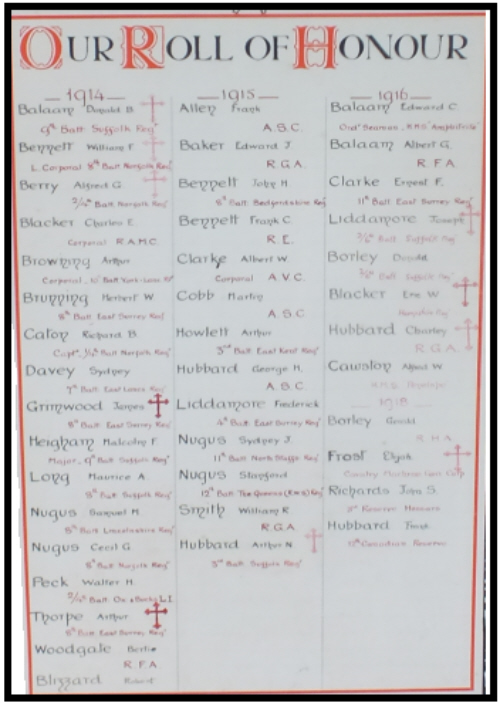 OUR ROLL OF HONOUR
1914
Balaam Donald B.
9th Batt Suffolk Regt
Bennett William F
L. Corporal 8th Batt Norfolk Regt
Berry Alfred G
2/4th Batt. Norfolk Regt
Blacker Charles E.
Corporal R.A.M.C.
Browning Arthur
Corporal, 10 Batt York-Lanc Rt
Brunning Herbert W
8th Batt East Surrey Regt
Caton Richard B.
Batt Norfolk Regt
Davey Sydney
7th Batt East Lancs Regt
Grimwood James
8th Batt East Surrey Regt
Heigham Malcolm F
Major, 9th Batt Suffolk Regt
Long Maurice A.
Batt Suffolk Regt
Nugus Samuel M.
8th Batt Lincolnshire Regt
Nugus Cecil G
8th Batt Norfolk Regt
Peck Walter H.
Batt. Ox & Bucks L.I.
Thorpe Arthur
8th Batt East Surrey Regt
Woodgate Bertie
R.F.A.
Blizzard Robert
1915
Allen Frank
A.S.C.
Baker Edward J.
R.G.A.
Bennett John H.
8th Batt Bedfordshire Regt
Bennett Frank C
R.E.
Clarke Albert W
Corporal A.V.C.
Cobb Martin
A.S.C
Howlett Arthur
3rd Batt East Kent Regt
Hubbard George H.
A.S.C
Liddamore Frederick
4th Batt East Surrey Regt
Nugus Sydney J.
11th Batt North Staffs Regt
Nugus Stanford
12th Batt The Queens (R.W.S) Regt
Smith William R
R.G.A
Hubbard Arthur N
3rd Batt Suffolk Regt
1916
Balaam Edward C.
Ord' Seaman, H.M.S 'Amphitrite'
Balaam Albert G.
R.F.A.
Clarke Ernest F.
11th Batt East Surrey Regt
Liddamore Joseph
Batt. Suffolk Regt
Borley Donald
Batt Suffolk Regt
Blacker Eric W
Hampshire Regt
Hubbard Charley
R.G.A.
Cawston Alfred W
H.M.S. Penelope
1918
Borley Gerald
R.H.A.
Frost Elijah
Cavalry Machine Gun Corps
Richards John S.
3rd Reserve Hussars
Hubbard
12th Canadian Reserve